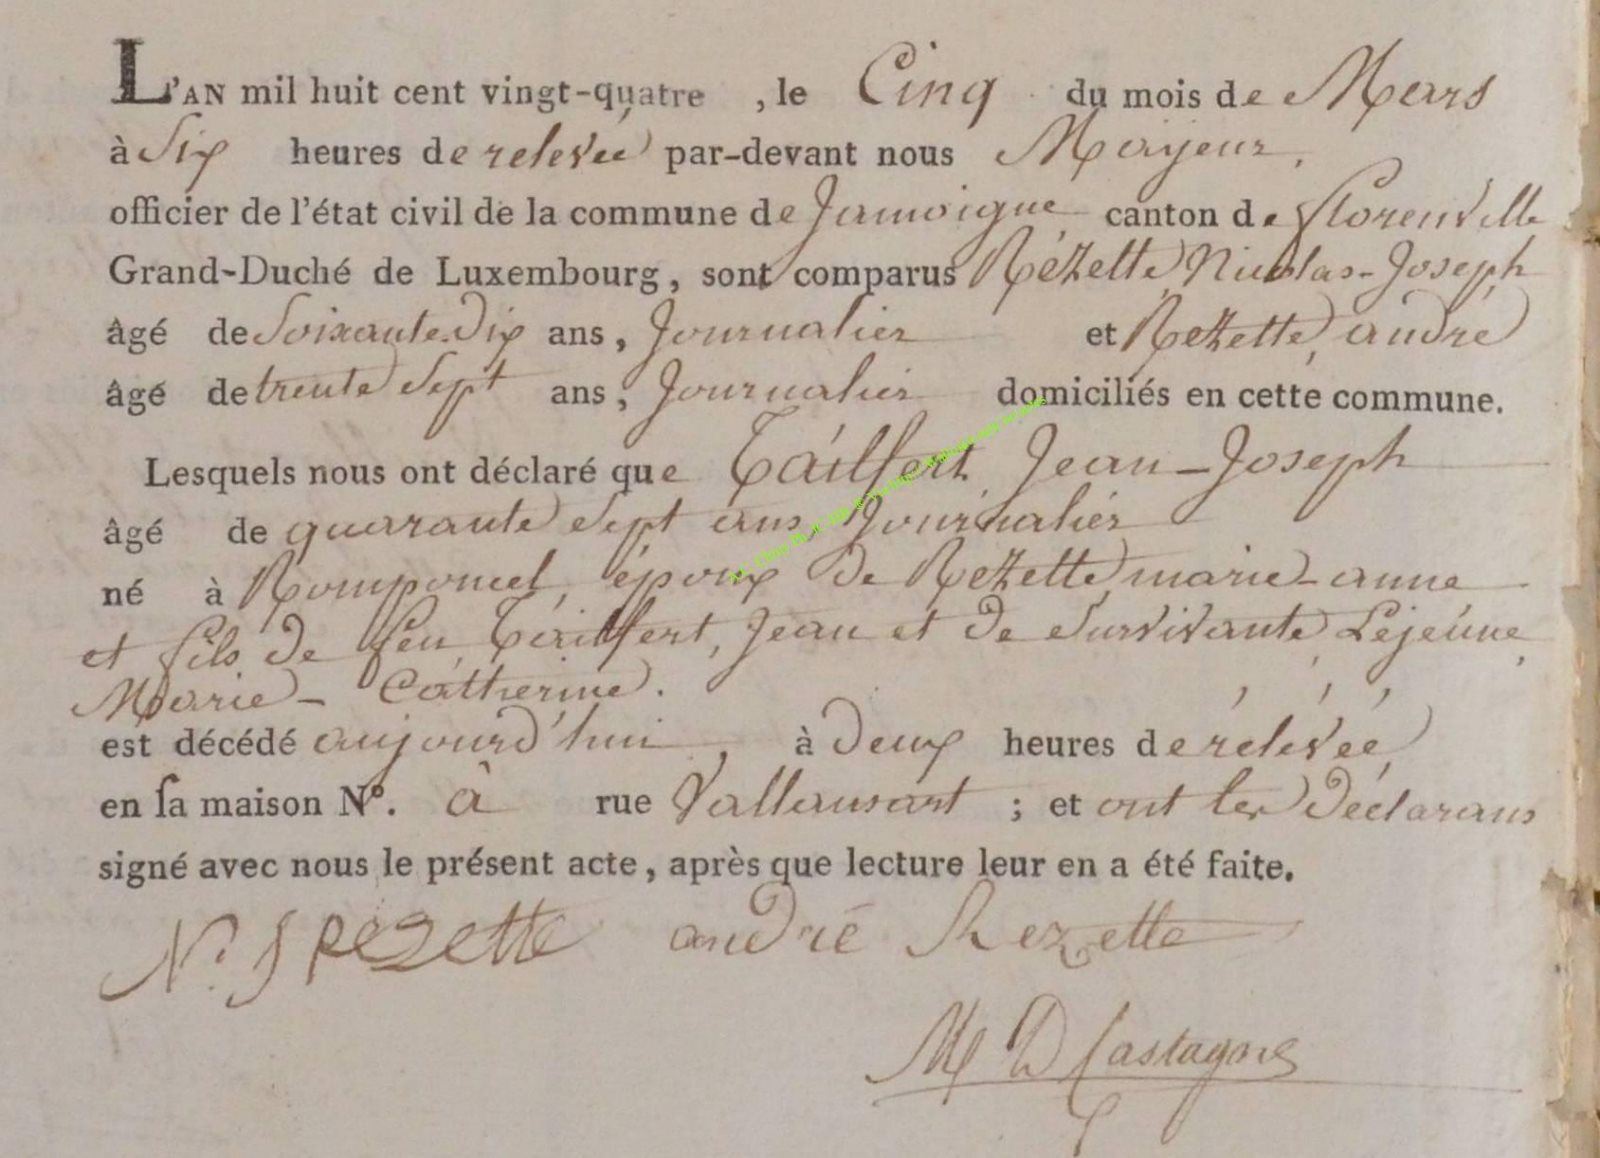 L'AN mil huit cent vingt-quatre , le Cinq du mois de Mars
à Six heures de relevée par-devant nous Mayeur,
officier de l'état civil de la commune de Jamoigne canton de florenville
Grand-Duché de Luxembourg, sont comparus Rézette, Nicolas-Joseph
âgé de Soixante-Dix ans, Journalier et Rezette, andré
âgé de trente Sept ans, Journalier domiciliés en cette commune.
Lesquels nous ont déclaré que Tailfert Jean-Joseph
âgé de quarante Sept ans, Journalier
né à Romponcel, époux de Rezette, marie-anne
et fils de feu Tailfert, Jean et de Survivante Lejeune,
Marie-Catherine.
est décédé aujourd'hui, à Deux heures de relevée,
en ſa maison Nº. à rue Vallansart ; et ont les Déclarans
signé avec nous le présent acte, après que lecture leur en a été faite.
N. J Rezette andré Rezette
M D Castagne